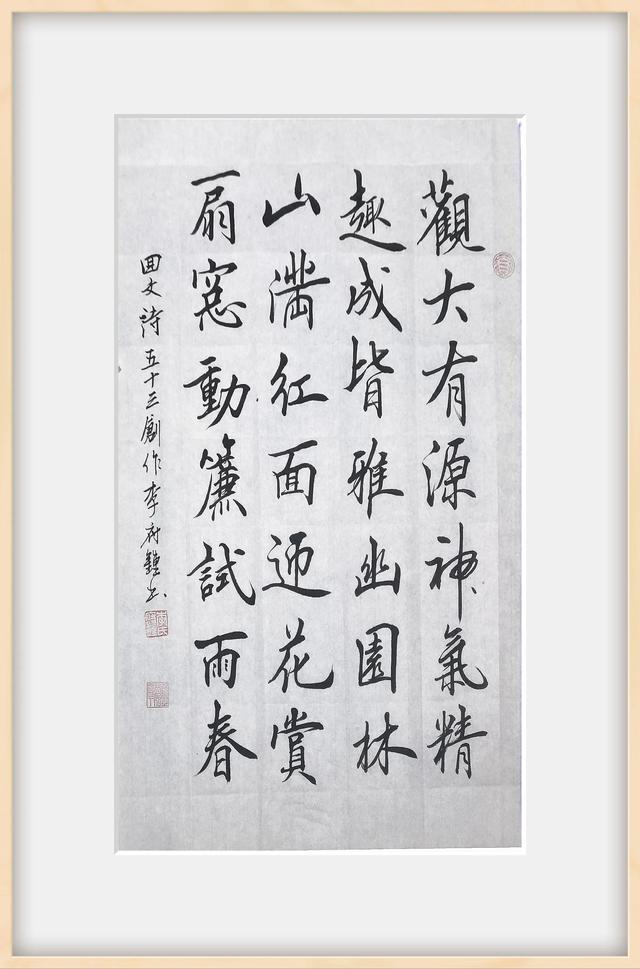 觀大有源神氣精
趣成皆雅幽園林
山滿紅面迎花賞
扇窓動簾試雨春
回文詩五十三創作李府鎮书